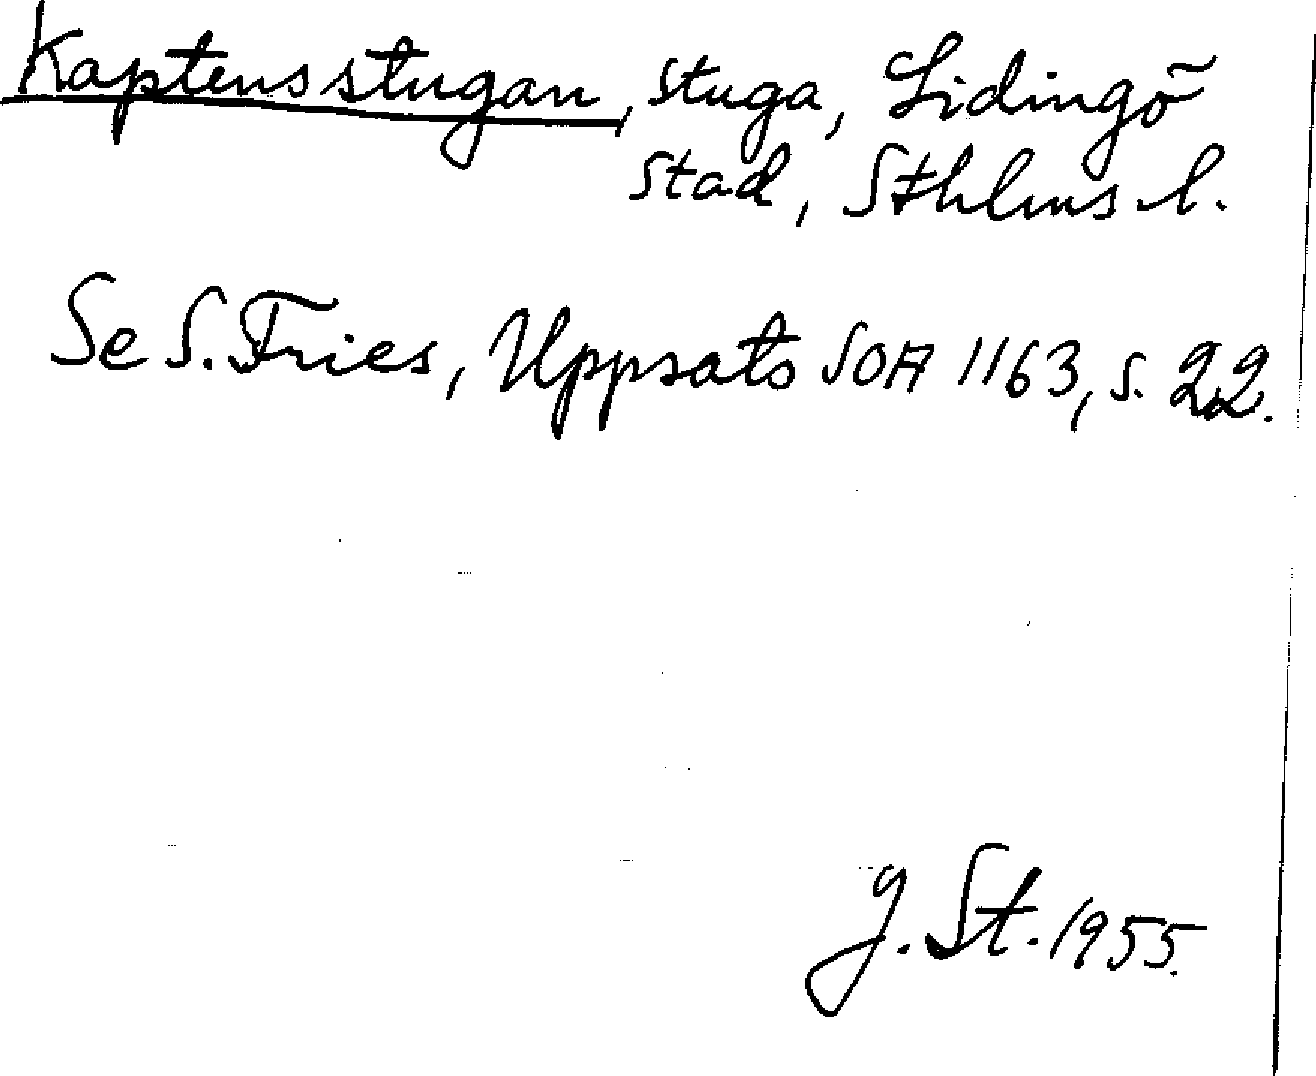 Kaptensstugan, stuga, Lidingö
stad, Sthlms l.
Se S. Fries, Uppsats SOA 1163, s. 22.
J. St. 1955.